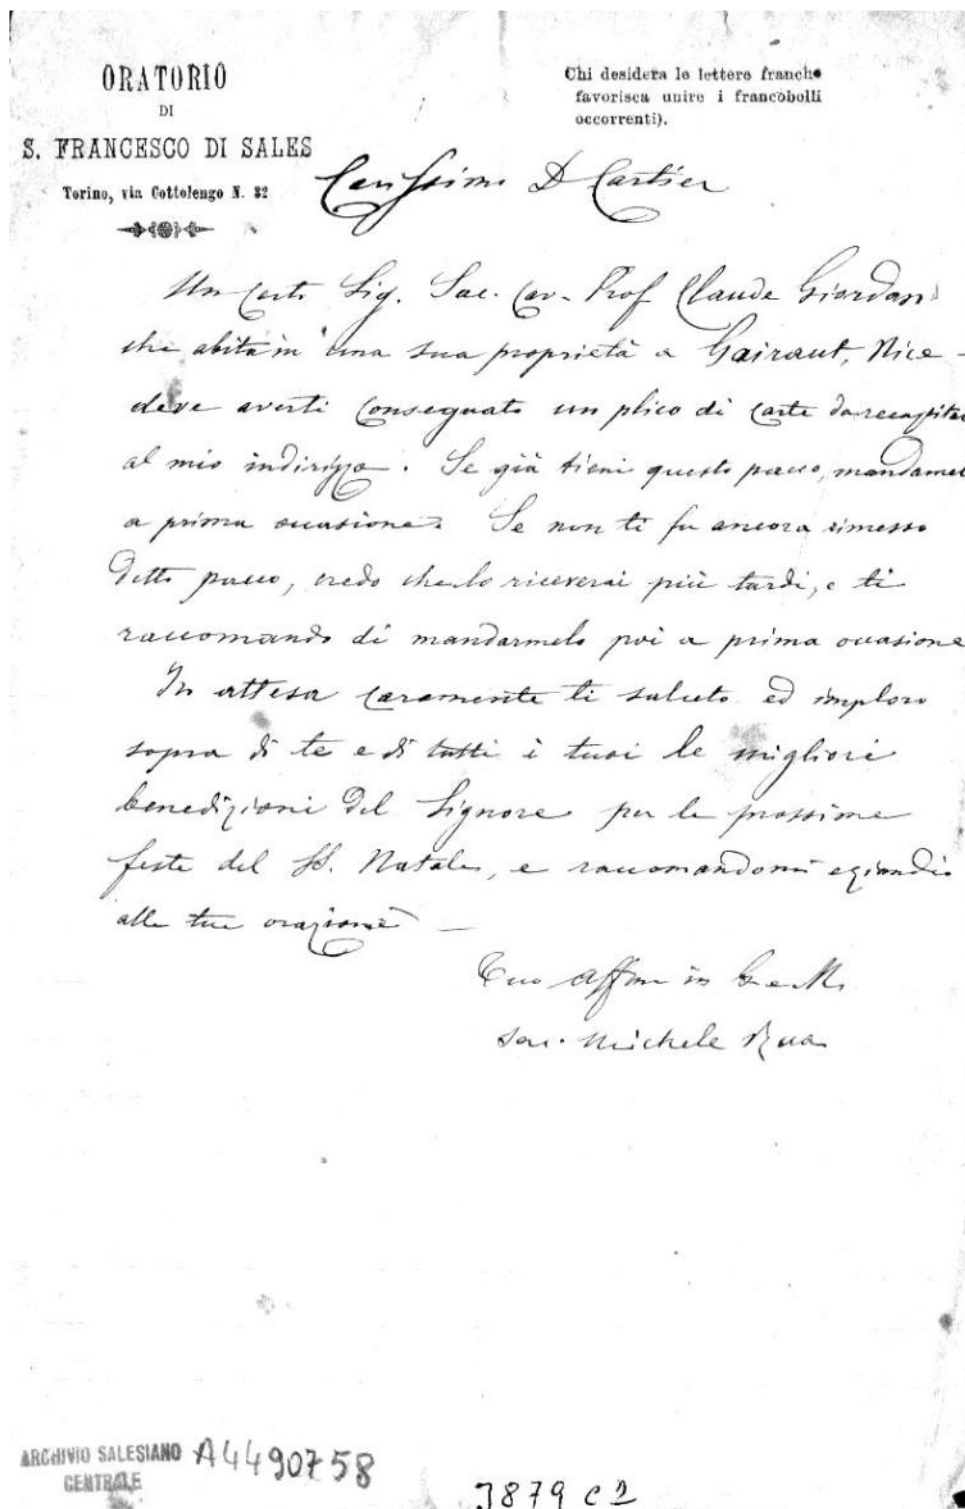 ORATORIO
DI
S. FRANCESCO DI SALES
Torino, via Cottolengo N. 32
Chi desidera le lettere franche
favorisca unire i francobolli
occorrenti).
Carissimo D Cartier
Un certo Sig. Sac. Cav. Prof Claude Giordan
che abita in una sua proprietà a Gairaut, Nice -
deve averti consegnato un plico di carte da recapitar
al mio indirizzo. Se già tieni questo pacco, mandamel
a prima occasione. Se non ti fu ancora rimesso
detto pacco, credo che lo riceverai più tardi, e ti
raccomando di mandarmelo poi a prima occasione
In attesa caramente ti saluto ed imploro
sopra di te e di tutti i tuoi le migliori
benedizioni del Signore per le prossime
feste del SS. Natale, e raccomandomi eziandio
alle tue orazioni —
Tuo affmo in G e M.
Sac. Michele Rua
ARCHIVIO SALESIANO
CENTRALE
A4490758
3879 C2